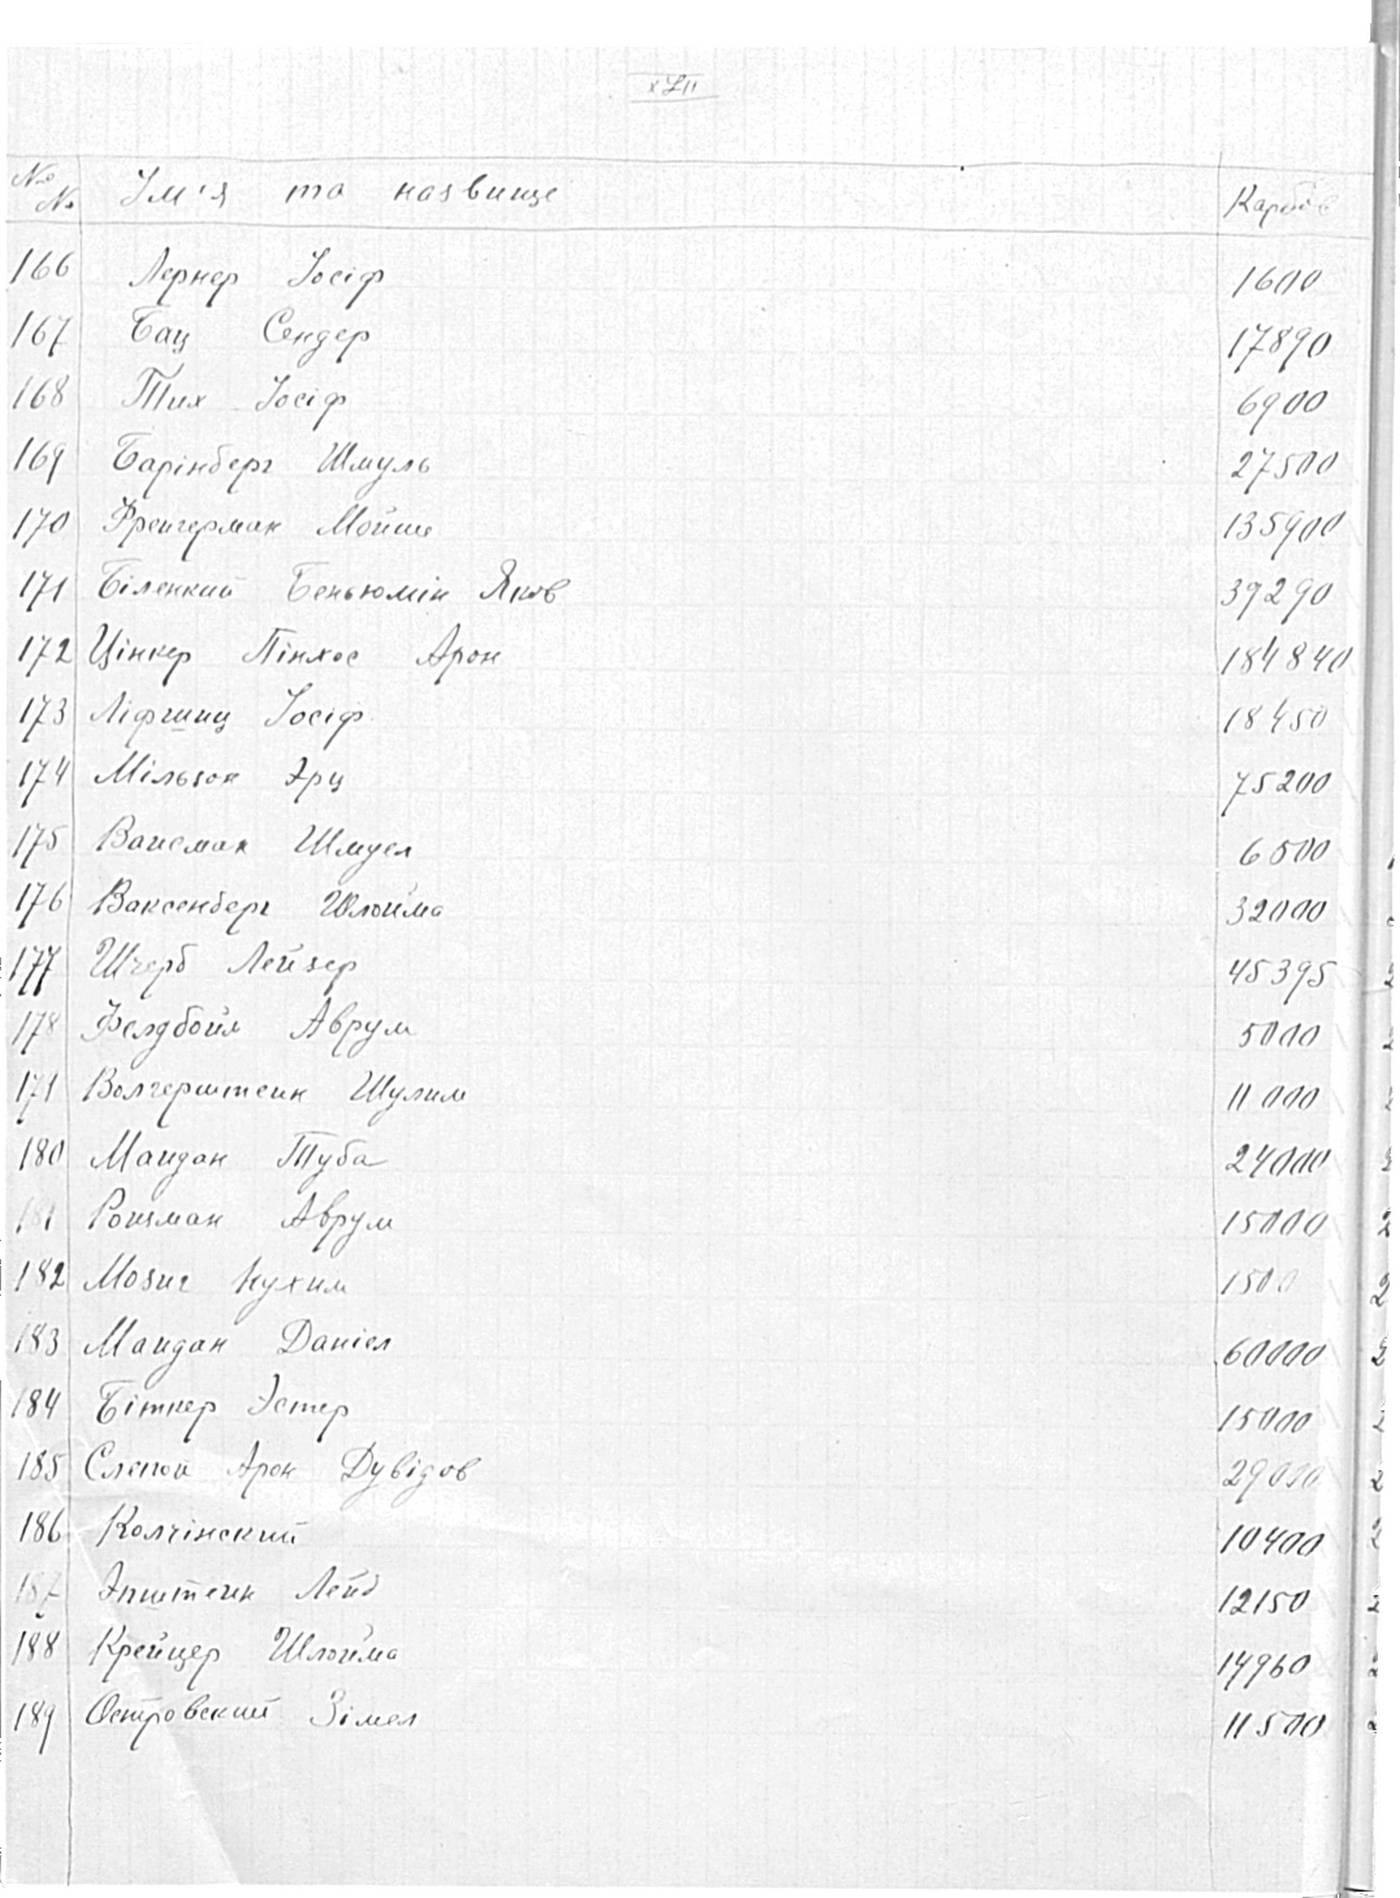 №№ Ім'я та назвище Карбов
166 Лернер Іосіф 1600
167 Бац Сендер 17890
168 Тих Іосіф 6900
169 Барінберг Шмуль 27500
170 Фреигерман Мойше 135900
171 Біленкий Беньюмін Яков 39290
172 Цінкер Пінхос Арон 184840
173 Ліфшиц Іосіф 18450
174 Мільзон Эрц 75200
175 Ваисман Шмуел 6500
176 Ваксенберг Шлойма 32000
177 Шчерб Лейзер 45395
178 Фелдбойм Аврум 5000
171 Волгерштеин Шулим 11000
180 Маидан Туба 24000
181 Роизман Аврум 15000
182 Мозиг Нухим 1500
183 Маидан Даніел 60000
184 Бітнер Эстер 15000
185 Слепои Арон Дувідов 29000
186 Колчінский 10400
187 Эпштеин Лейб 12150
188 Крейцер Шлойма 14960
189 Островский Зімел 11500